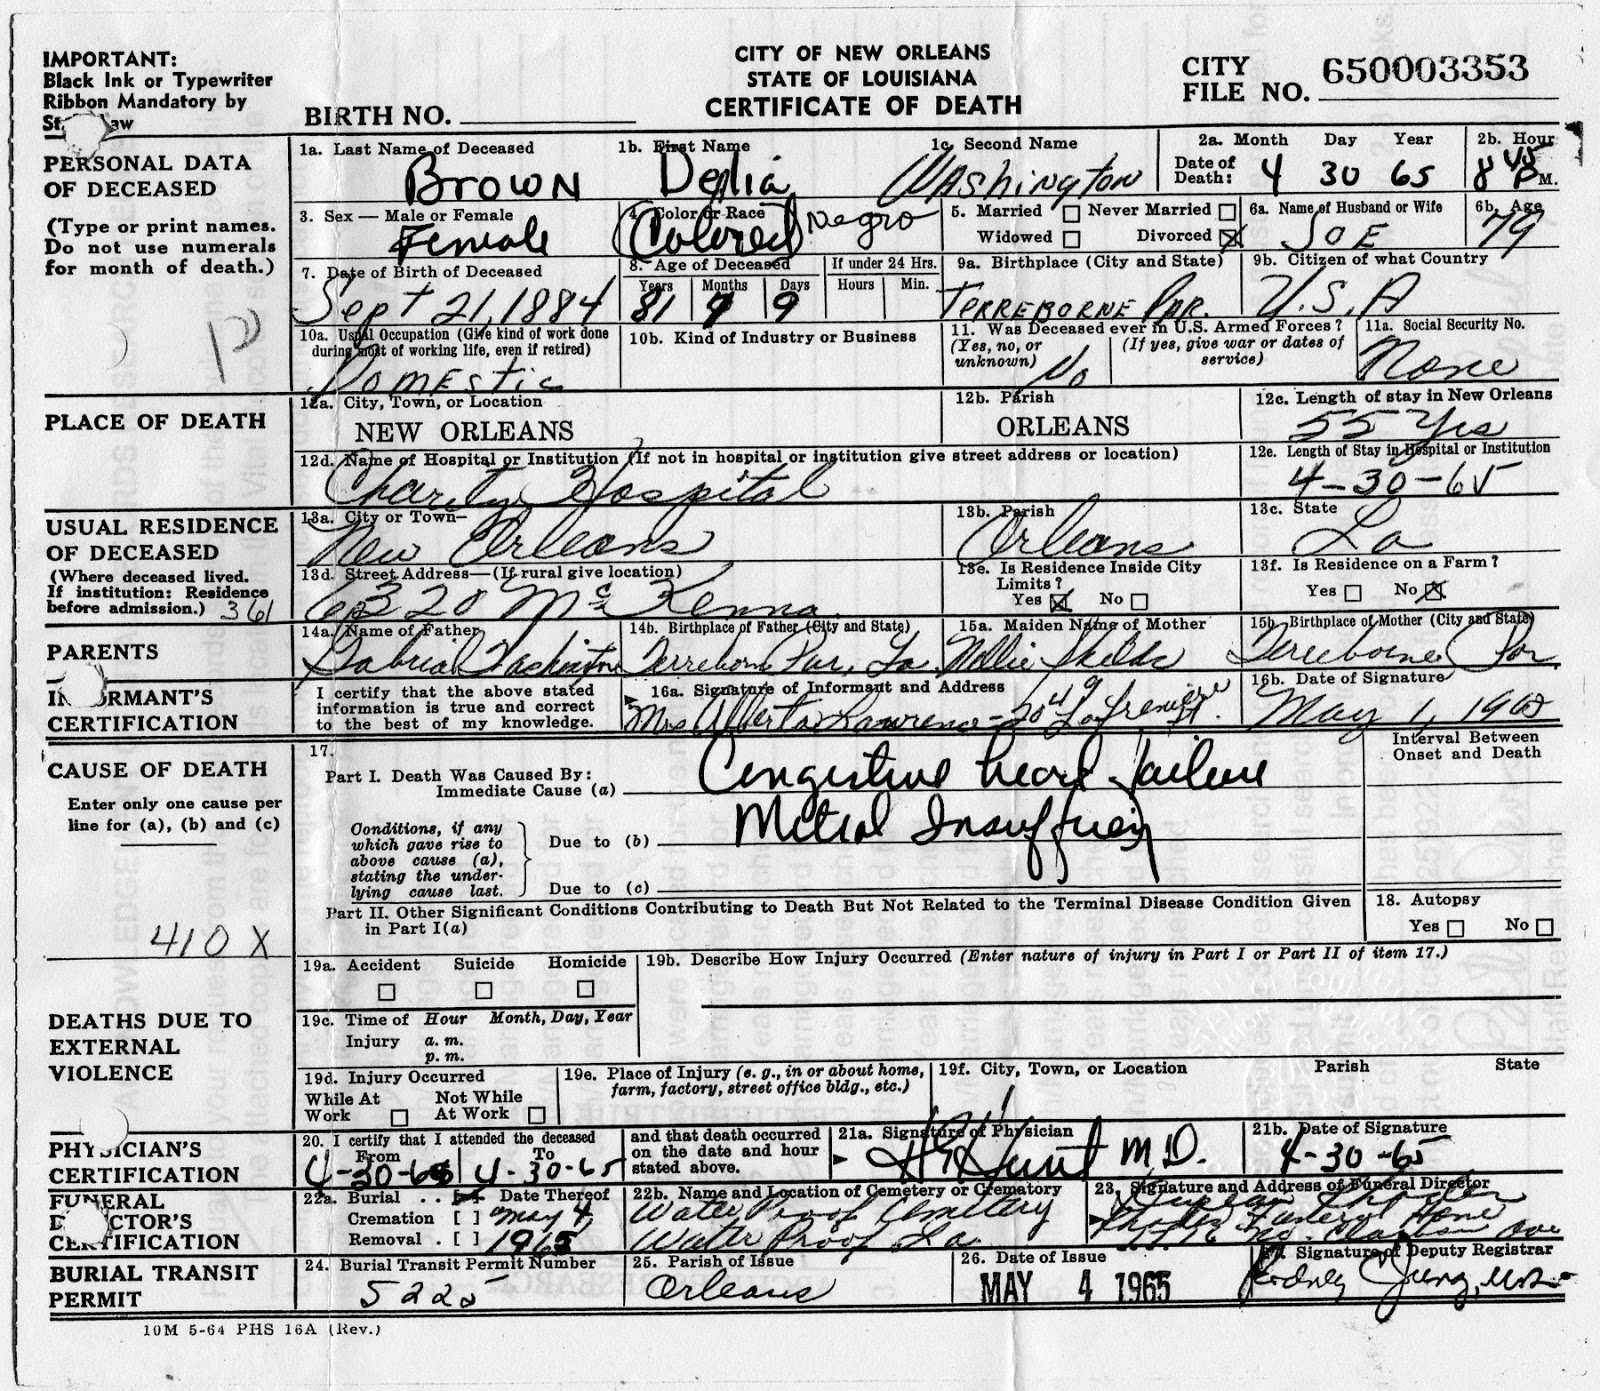 IMPORTANT:
Black Ink or Typewriter
Ribbon Mandatory by
CITY OF NEW ORLEANS
STATE OF LOUISIANA
CERTIFICATE OF DEATH
BIRTH NO.
CITY FILE NO. 650003353
PERSONAL DATA
OF DECEASED
(Type or print names.
Do not use numerals
for month of death.)
1a. Last Name of Deceased
Brown
1b. First Name
Delia
1c. Second Name
Washington
2a. Month Day Year
Date of Death: 4 30 65
2b. Hour
8 45 P M.
3. Sex — Male or Female
Female
4. Color or Race
Colored Negro
5. Married ☐ Never Married ☐
Widowed ☐ Divorced ☒
6a. Name of Husband or Wife
JOE
6b. Age
79
7. Date of Birth of Deceased
Sept 21, 1884
8. Age of Deceased
Years Months Days
81 9
If under 24 Hrs.
Hours Min.
9a. Birthplace (City and State)
TERREBORNE PAR.
9b. Citizen of what Country
U.S.A
10a. Usual Occupation (Give kind of work done
during most of working life, even if retired)
Domestic
10b. Kind of Industry or Business
11. Was Deceased ever in U.S. Armed Forces?
(Yes, no, or unknown) (If yes, give war or dates of service)
No
11a. Social Security No.
None
PLACE OF DEATH
12a. City, Town, or Location
NEW ORLEANS
12b. Parish
ORLEANS
12c. Length of stay in New Orleans
55 Yrs
12d. Name of Hospital or Institution (If not in hospital or institution give street address or location)
Charity Hospital
12e. Length of Stay in Hospital or Institution
4-30-65
USUAL RESIDENCE
OF DECEASED
(Where deceased lived.
If institution: Residence
before admission.) 361
13a. City or Town—
New Orleans
13b. Parish
Orleans
13c. State
La
13d. Street Address—(If rural give location)
McKenna
13e. Is Residence Inside City
Limits?
Yes ☒ No ☐
13f. Is Residence on a Farm?
Yes ☐ No ☒
PARENTS
14a. Name of Father
Gabriel Washington
14b. Birthplace of Father (City and State)
Terreborn Par, La.
15a. Maiden Name of Mother
Nellie
15b. Birthplace of Mother (City and State)
Terreborne Par
CERTIFICATION
I certify that the above stated
information is true and correct
to the best of my knowledge.
16a. Signature of Informant and Address
Mrs Alberta Lawrence - St.
16b. Date of Signature
May 1, 1965
CAUSE OF DEATH
Enter only one cause per
line for (a), (b) and (c)
410 X
17.
Part I. Death Was Caused By:
Immediate Cause (a) Congestive heart failure
Interval Between
Onset and Death
Conditions, if any
which gave rise to
above cause (a),
stating the under-
lying cause last.
Due to (b) Mitral
Due to (c)
Part II. Other Significant Conditions Contributing to Death But Not Related to the Terminal Disease Condition Given
in Part I(a)
18. Autopsy
Yes ☐ No ☐
DEATHS DUE TO
EXTERNAL
VIOLENCE
19a. Accident Suicide Homicide
☐ ☐ ☐
19b. Describe How Injury Occurred (Enter nature of injury in Part I or Part II of item 17.)
19c. Time of Hour Month, Day, Year
Injury a. m.
p. m.
19d. Injury Occurred
While At Work ☐ Not While At Work ☐
19e. Place of Injury (e. g., in or about home,
farm, factory, street office bldg., etc.)
19f. City, Town, or Location Parish State
CERTIFICATION
20. I certify that I attended the deceased
From To
4-30-65 4-30-65
and that death occurred
on the date and hour
stated above.
21a. Signature of Physician
Hunt M.D.
21b. Date of Signature
4-30-65
FUNERAL
CERTIFICATION
22a. Burial . . [x] Date Thereof
Cremation [ ] May 4,
Removal . [ ] 1965
22b. Name and Location of Cemetery or Crematory
Water Proof Cemetery
Water Proof La
23. Signature and Address of Funeral Director
Rhodes Funeral Home
BURIAL TRANSIT
PERMIT
24. Burial Transit Permit Number
5225
25. Parish of Issue
Orleans
26. Date of Issue
MAY 4 1965
27. Signature of Deputy Registrar
Rodney Jung, M.D.
10M 5-64 PHS 16A (Rev.)